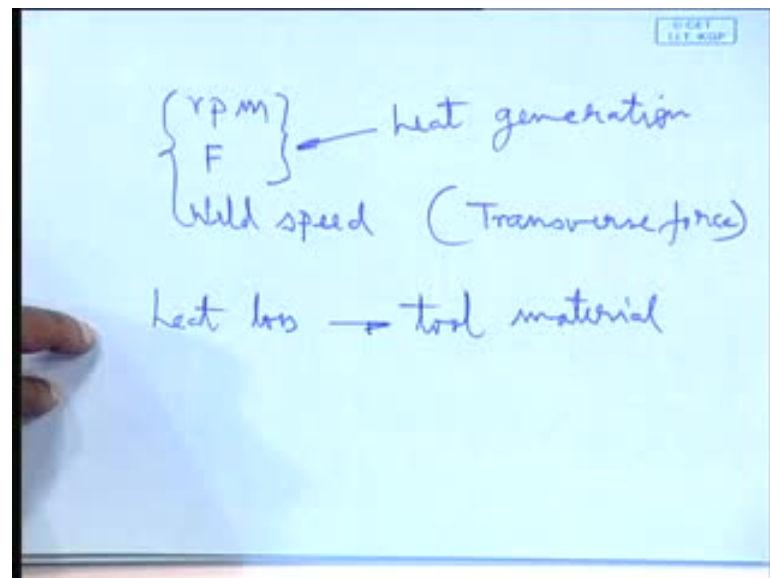 © CET
I.I.T. KGP
rpm
F
heat generation
Weld speed (Transverse force)
heat loss → tool material